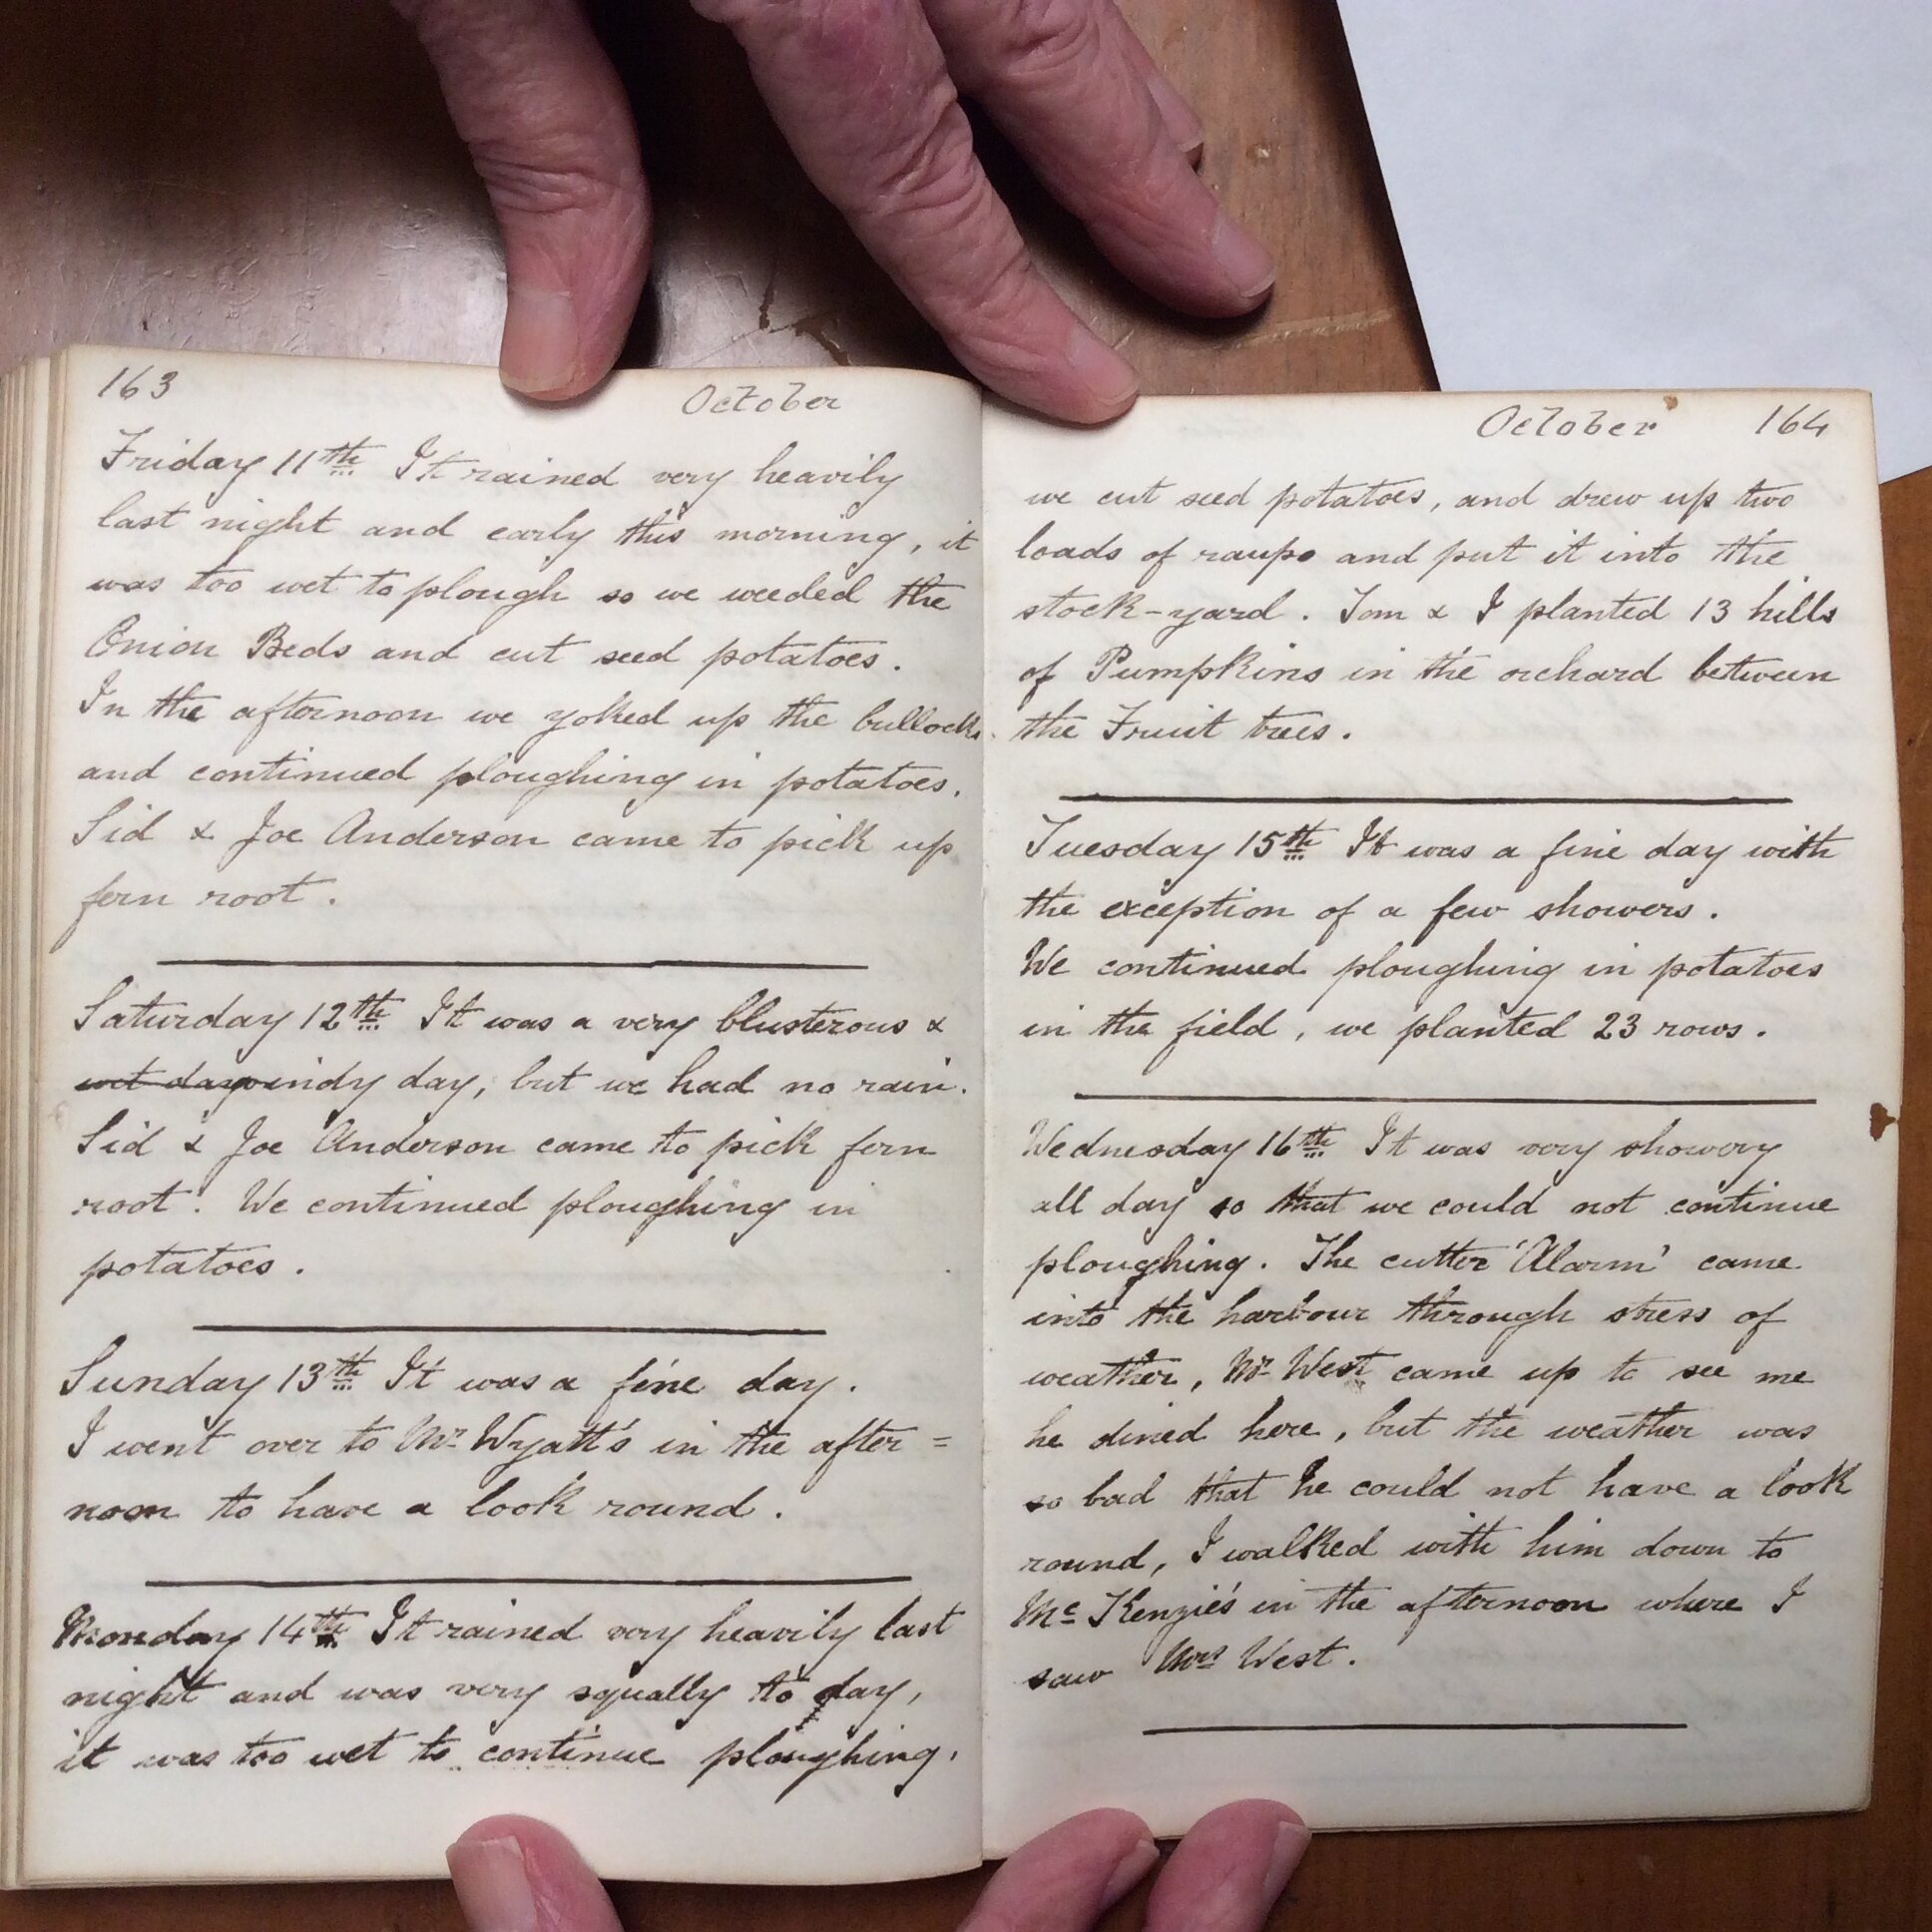 163 October
Friday 11th It rained very heavily
last night and early this morning, it
was too wet to plough so we weeded the
Onion Beds and cut seed potatoes.
In the afternoon we yoked up the bullocks
and continued ploughing in potatoes.
Sid & Joe Anderson came to pick up
fern root.
Saturday 12th It was a very blusterous &
wet day windy day, but we had no rain.
Sid & Joe Anderson came to pick fern
root. We continued ploughing in
potatoes.
Sunday 13th It was a fine day.
I went over to Mr Wyatt's in the after=
noon to have a look round.
Monday 14th It rained very heavily last
night and was very squally to day,
it was too wet to continue ploughing.
October 164
we cut seed potatoes, and drew up two
loads of raupo and put it into the
stock-yard. Tom & I planted 13 hills
of Pumpkins in the orchard between
the Fruit trees.
Tuesday 15th It was a fine day with
the exception of a few showers.
We continued ploughing in potatoes
in the field, we planted 23 rows.
Wednesday 16th It was very showery
all day so that we could not continue
ploughing. The cutter 'Alarm' came
into the harbour through stress of
weather, Mr West came up to see me
he dined here, but the weather was
so bad that he could not have a look
round, I walked with him down to
McKenzie's in the afternoon where I
saw Mrs West.